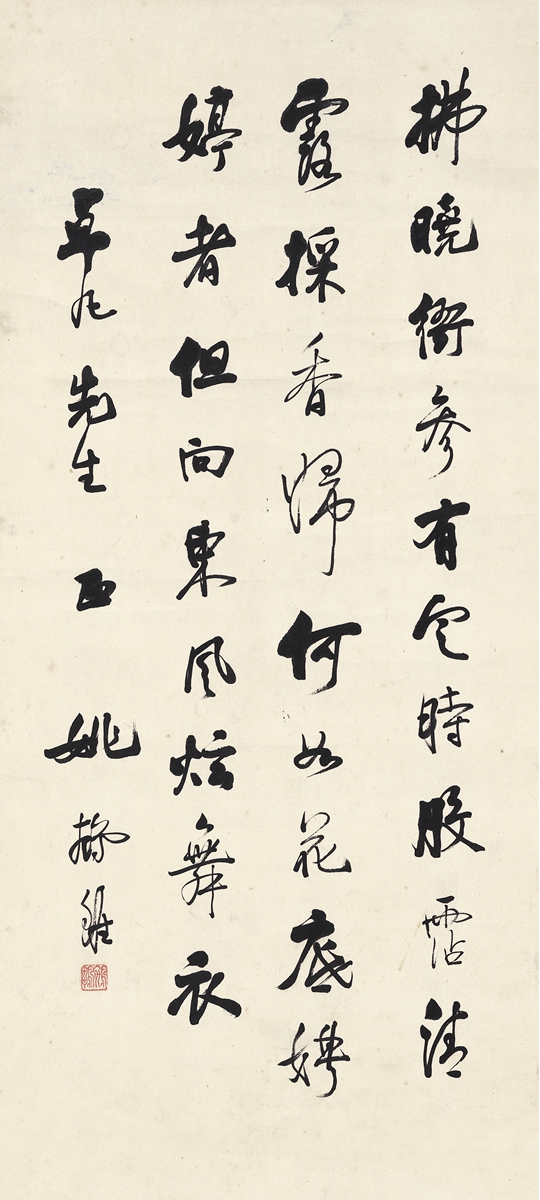 拂曉衙參有定時股霑清
露採香歸何如花底娉
婷者但向東風炫舞衣
先生正 姚